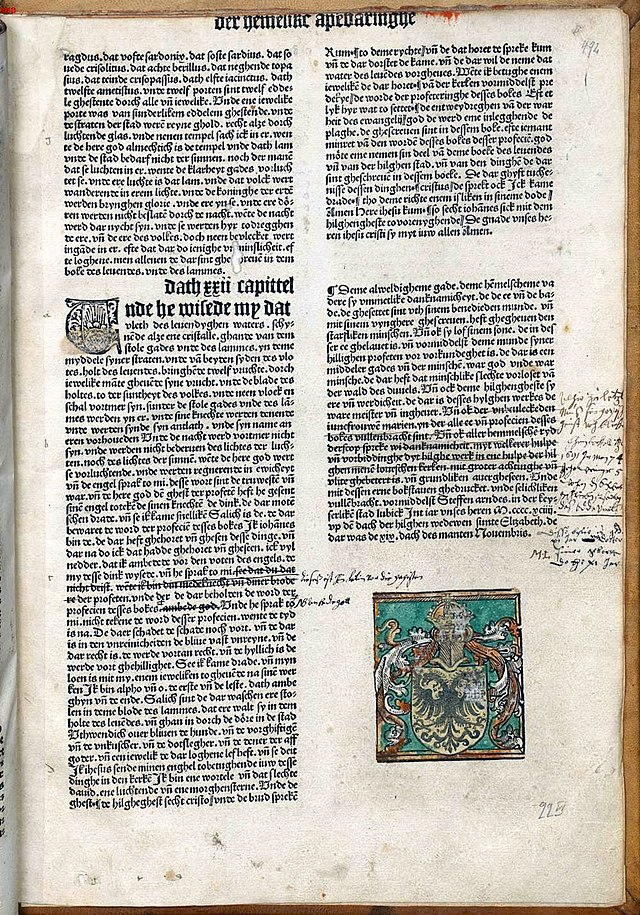 der hemelike apebaringhe
ragdus. dat vofte sardonix. dat soste sardius. dat so
uede crisolitus. dat achte berillus. dat neghende topa
sius. dat teinde crisopassus. dath elfte iacinctus. dath
twelfte ametistus. vnde twelf porten sint twelf edde
le ghestente dorch alle vn̄ iewelike. Unde ene iewelike
porte was van sinderlikem eddelem ghestēte. vnde
te straten der stad werē reyne ghold. recht alze dorch
luchtende glas. vnde nenen tempel sach ick in er. wen
te de here god almechtich is de tempel vnde dath lam
vnde de stad bedarf nicht ter sunnen. noch der manē
dat se luchten in er. wente de klarheyt gades vorluch
tet se. vnde ere luchte is dat lam. vnde dat volck wert
wanderende in erem lichte. vnde de koninghe ter ertē
werden brynghen glorie. vnde ere yn se. vnde ere dö
ren werden nicht beslatē dorch te nacht. wēte de nacht
werd dar nycht syn. vnde se werden hyr to dregghen
te ere. vn̄ de ere des volkes. doch neen bevlecket wert
ingāde in er. efte dat dar do ienighe vnminslicheit. ef
te loghene. men allenen te dar sint ghescreuē in dem
boke des leuentes. vnde des lammes.
dath xxii capittel
Unde he wisede my dat
vleth des leuendyghen waters. schy
nēde alze ene cristalle. ghante van ten
stole gades vnde des lammes. yn teme
myddele syner straten. vnde vā beyten syden tes vlo
tes. holt des leuentes. bringhēte twelf vruchte. dorch
iewelike māte gheuēte syne vrucht. vnde de blade tes
holtes. to ter suntheyt des volkes. vnde neen vloek en
schal vortmer syn. sunter de stole gades vnde tes lā
mes werden yn er. vnde sine knechte werten tenente
vnde werten synde syn antlath. vnde syn name an
eren vorhoueden Unde de nacht werd vortmer nicht
syn. vnde werden nicht behouen des lichtes ter luch
ten. noch tes lichtes der sunnē. wēte de here god wert
se vorluchtende. vnde werten regnerente in ewicheyt
vn̄ de engel sprak to mi. desse wort sint de truwestē vn̄
war. vn̄ te here god dē ghest ter profetē heft he gesent
sinē engel totekē de sinen knechtē de dink. de dar mote
schen drade. vn̄ se ik kame snellike Salich is de. te dar
bewaret te wort ter profecie tesses bokes Jk iohānes
bin te. de dar heft ghehoret vn̄ ghesen desse dinge. vn̄
dar na do ick dat hadde ghehoret vn̄ ghesen. ick vyl
nedder. dat ik ambete te vor den voten des engels. te
my tesse dink wysete. vn̄ he sprak to mi. see dat du dat
nicht deist. wēte ik bin dat medeknecht vn̄ diner brode
re der profeten. vnde der de dar beholten de word ter
profecien tesses bokes. ambede god. Unde he sprak to
mi. nicht tekene te word desser profecien. wente de tyd
is na. De daer schadet te schade noch vort. vn̄ de dar
is in ten vnreinicheiten de blive vast vnreyne. vn̄ de
dar recht is. te werde vortan recht. vn̄ te hyllich is de
werde vort ghehillighet. See ik kame drade. vn̄ myn
loen is mit my. enem iewelikē to gheuē te na sinē wer
ken Jk bin alpho vn̄ o. te erste vn̄ de leste. dath ambe
ghyn vn̄ te ende. Salich sint de dar waschen ere sto
len in teme blode tes lammes. dat ere walt sy in tem
holte tes leuēdes. vn̄ ghan in dorch de dōre in de stad
Uthwendich ouer bliuen te hunde. vn̄ te vorghiftigē
vn̄ te vnkuscher. vn̄ te dotslegher. vn̄ te tener ter aff
goter. vn̄ een iewelik te dar loghene lef heft. vn̄ se deit
Jk ihesus sende minen enghel to betughende iuw desse
dinghe in den kerkē Jk bin ene wortele vn̄ dat slechte
dauid. ene luchtende vn̄ ene morghensterne. Unde de
ghest vn̄ te hilgheghest secht cristo vnde te brud sprekē
Kum to deme rychte vn̄ de dat horet te spreke kum
vn̄ te dar dorstet de kame. vn̄ de dar wil de neme dat
water des leuēdes vorgheues. Wēte ik betughe enem
iewelikē de dar horet van der kerken vormiddelst pre
dekye de worde ter profeteringhe desses bokes Eft et
lyk hyr wat to settet de entweydreghen van der war
heit des ewangelii god de werd eme inlegghende de
plaghe. de ghescreuen sint in dessem boke. efte iemant
minret van den wordē desses bokes desser profecie. god
mote eme nemen sin deel van deme boeke des leuendes
vn̄ van der hilghen stad. vn̄ van den dinghē de dar
sint ghescreuē in dessem boeke. De dar ghyft tuche
nisse dessen dinghen cristus de sprekt ock Jck kame
drade tho deme richte enem islikem in sineme dode
Amen Here ihesu kum so secht iohānes sick mit dem
hilghengheste to vorenyghende De gnade vnses he
ren ihesu cristi sy myt iuw allen Amen.
¶ Deme alweldigheme gade. deme hēmelscheme va
dere sy vnmetlike danknamicheyt. de de ee vn̄ de ba
de. de ghesettet sint vth sinem benedieden munde. vn̄
mit sinem vynghere ghescreuen. heft ghegheuen den
starfliken minschen. Vn̄ ok sy lof sinem sone. de in des
ser ee ghelauet is. vn̄ vormiddelst deme munde syner
hillighen profeten vor vorkundeghet is. de dar is een
middeler gades vn̄ der minschē. war god vnde war
minsche. de dar heft dat minschlike slechte vorloset vā
der wald des duuels. Vn̄ ock deme hilgengheste sy
ere vn̄ werdicheit. de dar is desses hylghen werkes de
ware meister vn̄ ingheuer. Vn̄ ok der vnbeuleckeden
iuncfrouwē marien. yn der alle ee vn̄ profecien desses
bokes vullenbracht sint. Vn̄ ok alle hemmelschē ryd
derscop sprek wy danknamicheit. myt welkerer hulpe
vn̄ vorbiddinghe dyt hilghe werk in ene hulpe der hil
ghen menē cristen kerken. mit groter achtinghe vn̄
vlite ghebetert is. vn̄ grundliken auerghesen. Unde
mit dessen erne bokstauen ghedrucket. vnde seliliken
vullēbracht. vormiddelst Steffen arndes. in der key-
serlikē stad lubick Int iar vnses heren M. cccc. xciiij.
vp dē dach der hilghen wedewen sunte Elizabeth. de
dar was de xix. dach des mantes Nouembris.
494
225